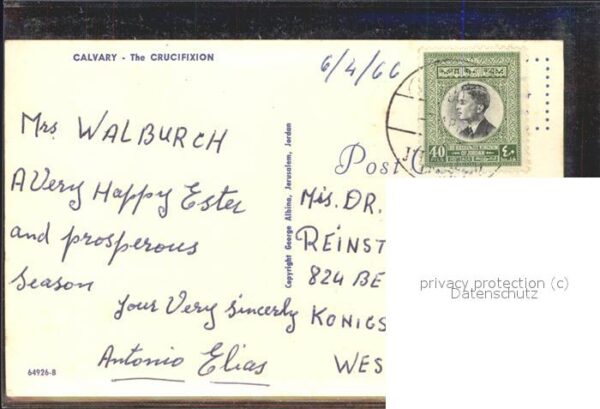 CALVARY - The CRUCIFIXION
6/4/66
Mrs WALBURCH
A Very Happy Ester
and prosperous
Season
Your Very Sincerly
Antonio Elias
64926-B
Copyright George Albina, Jerusalem, Jordan
Post
40
FILS
THE HASHEMITE KINGDOM
OF JORDAN
٤٠
Mis. DR.
REINST
824 BE
KONIGS
WES
privacy protection (c)
Datenschutz